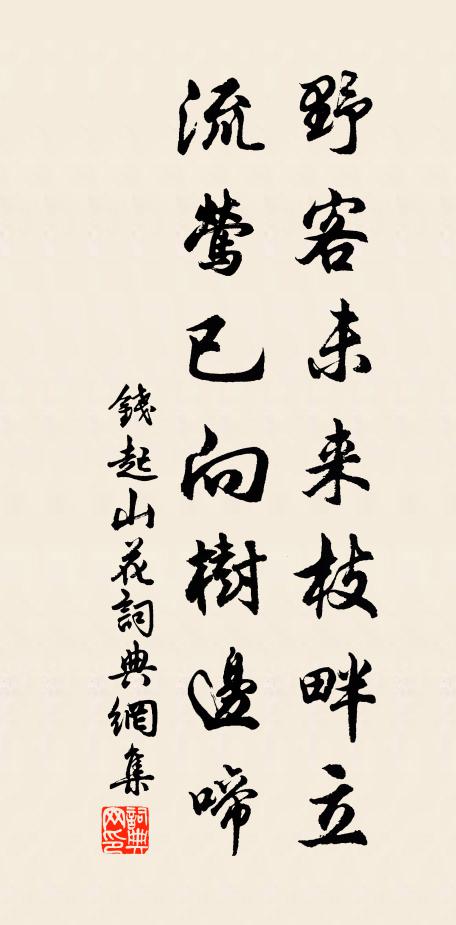 野客未来枝畔立
流莺已向樹邊啼
錢起山花詞典網集
詞典网印